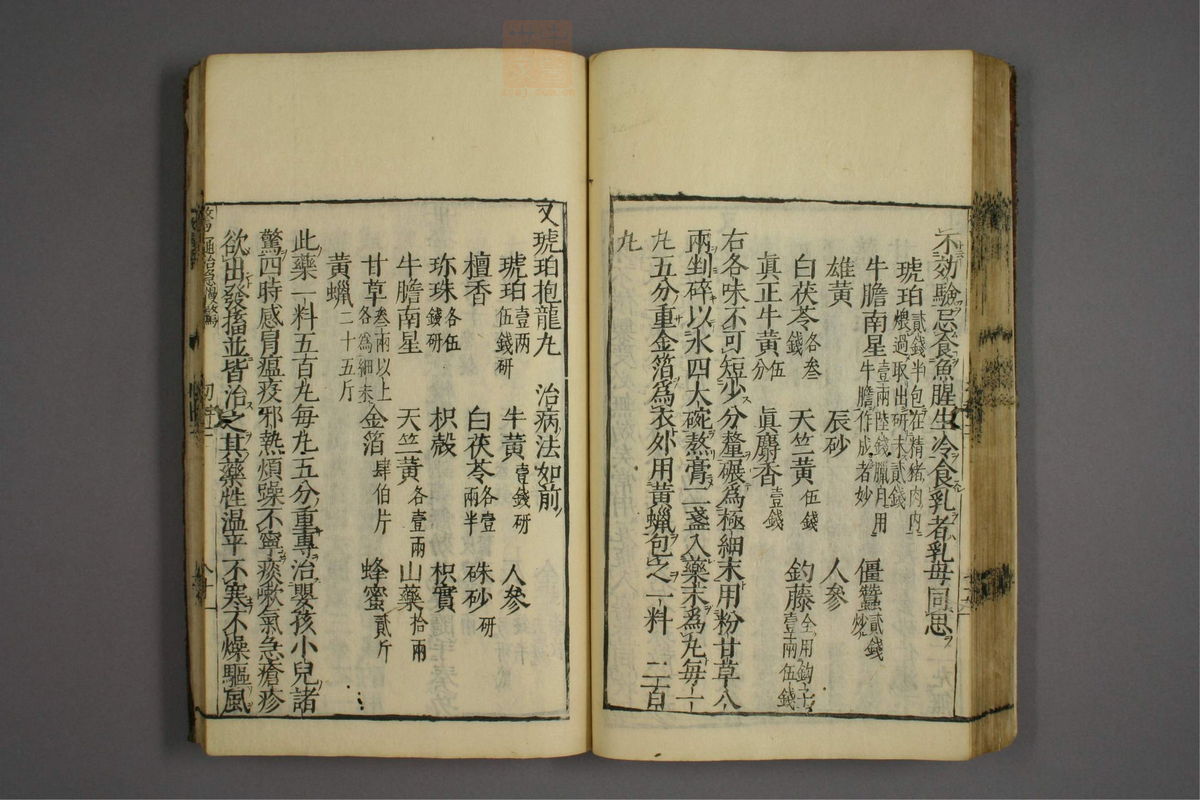 不効驗忌食魚腥生冷食乳者乳母同忌
琥珀 貳錢半包在精猪肉内煨過取出研末貳錢
牛膽南星 壹兩陸錢臘月用牛膽作成者妙 僵蠶 貳錢炒
雄黃 辰砂 人參
白茯苓 各叁錢 天竺黃 伍錢 釣藤 全用鈎子壹兩伍錢
真正牛黃 伍分 真麝香 壹錢
右各味不可短少分釐碾為極細末用粉甘草八
兩剉碎以水四大碗熬膏二盞入藥末為丸毎一
丸五分重金箔為衣外用黃蠟包之一料 二百
丸
又琥珀抱龍丸 治病法如前
琥珀 壹兩伍錢研 牛黃 壹錢研 人參
檀香 白茯苓 各壹兩半 硃砂 研
珎珠 各伍錢研 枳殼 枳實
牛膽南星 天竺黃 各壹兩 山藥 拾兩
甘草 叁兩以上各為細末 金箔 肆伯片 蜂蜜 貳斤
黃蠟 二十五斤
此藥一料五百丸毎丸五分重專治嬰孩小兒諸
驚四時感冒瘟疫邪熱煩躁不寧痰嗽氣急瘡疹
欲出發搐並皆治之其藥性溫平不寒不燥驅風